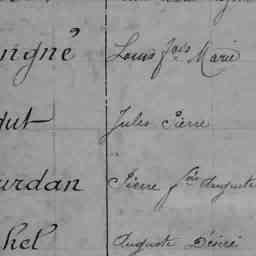 igné Louis fois Marie
ut Jules Pierre
urdan Pierre fois Auguste
hel Auguste Désiré